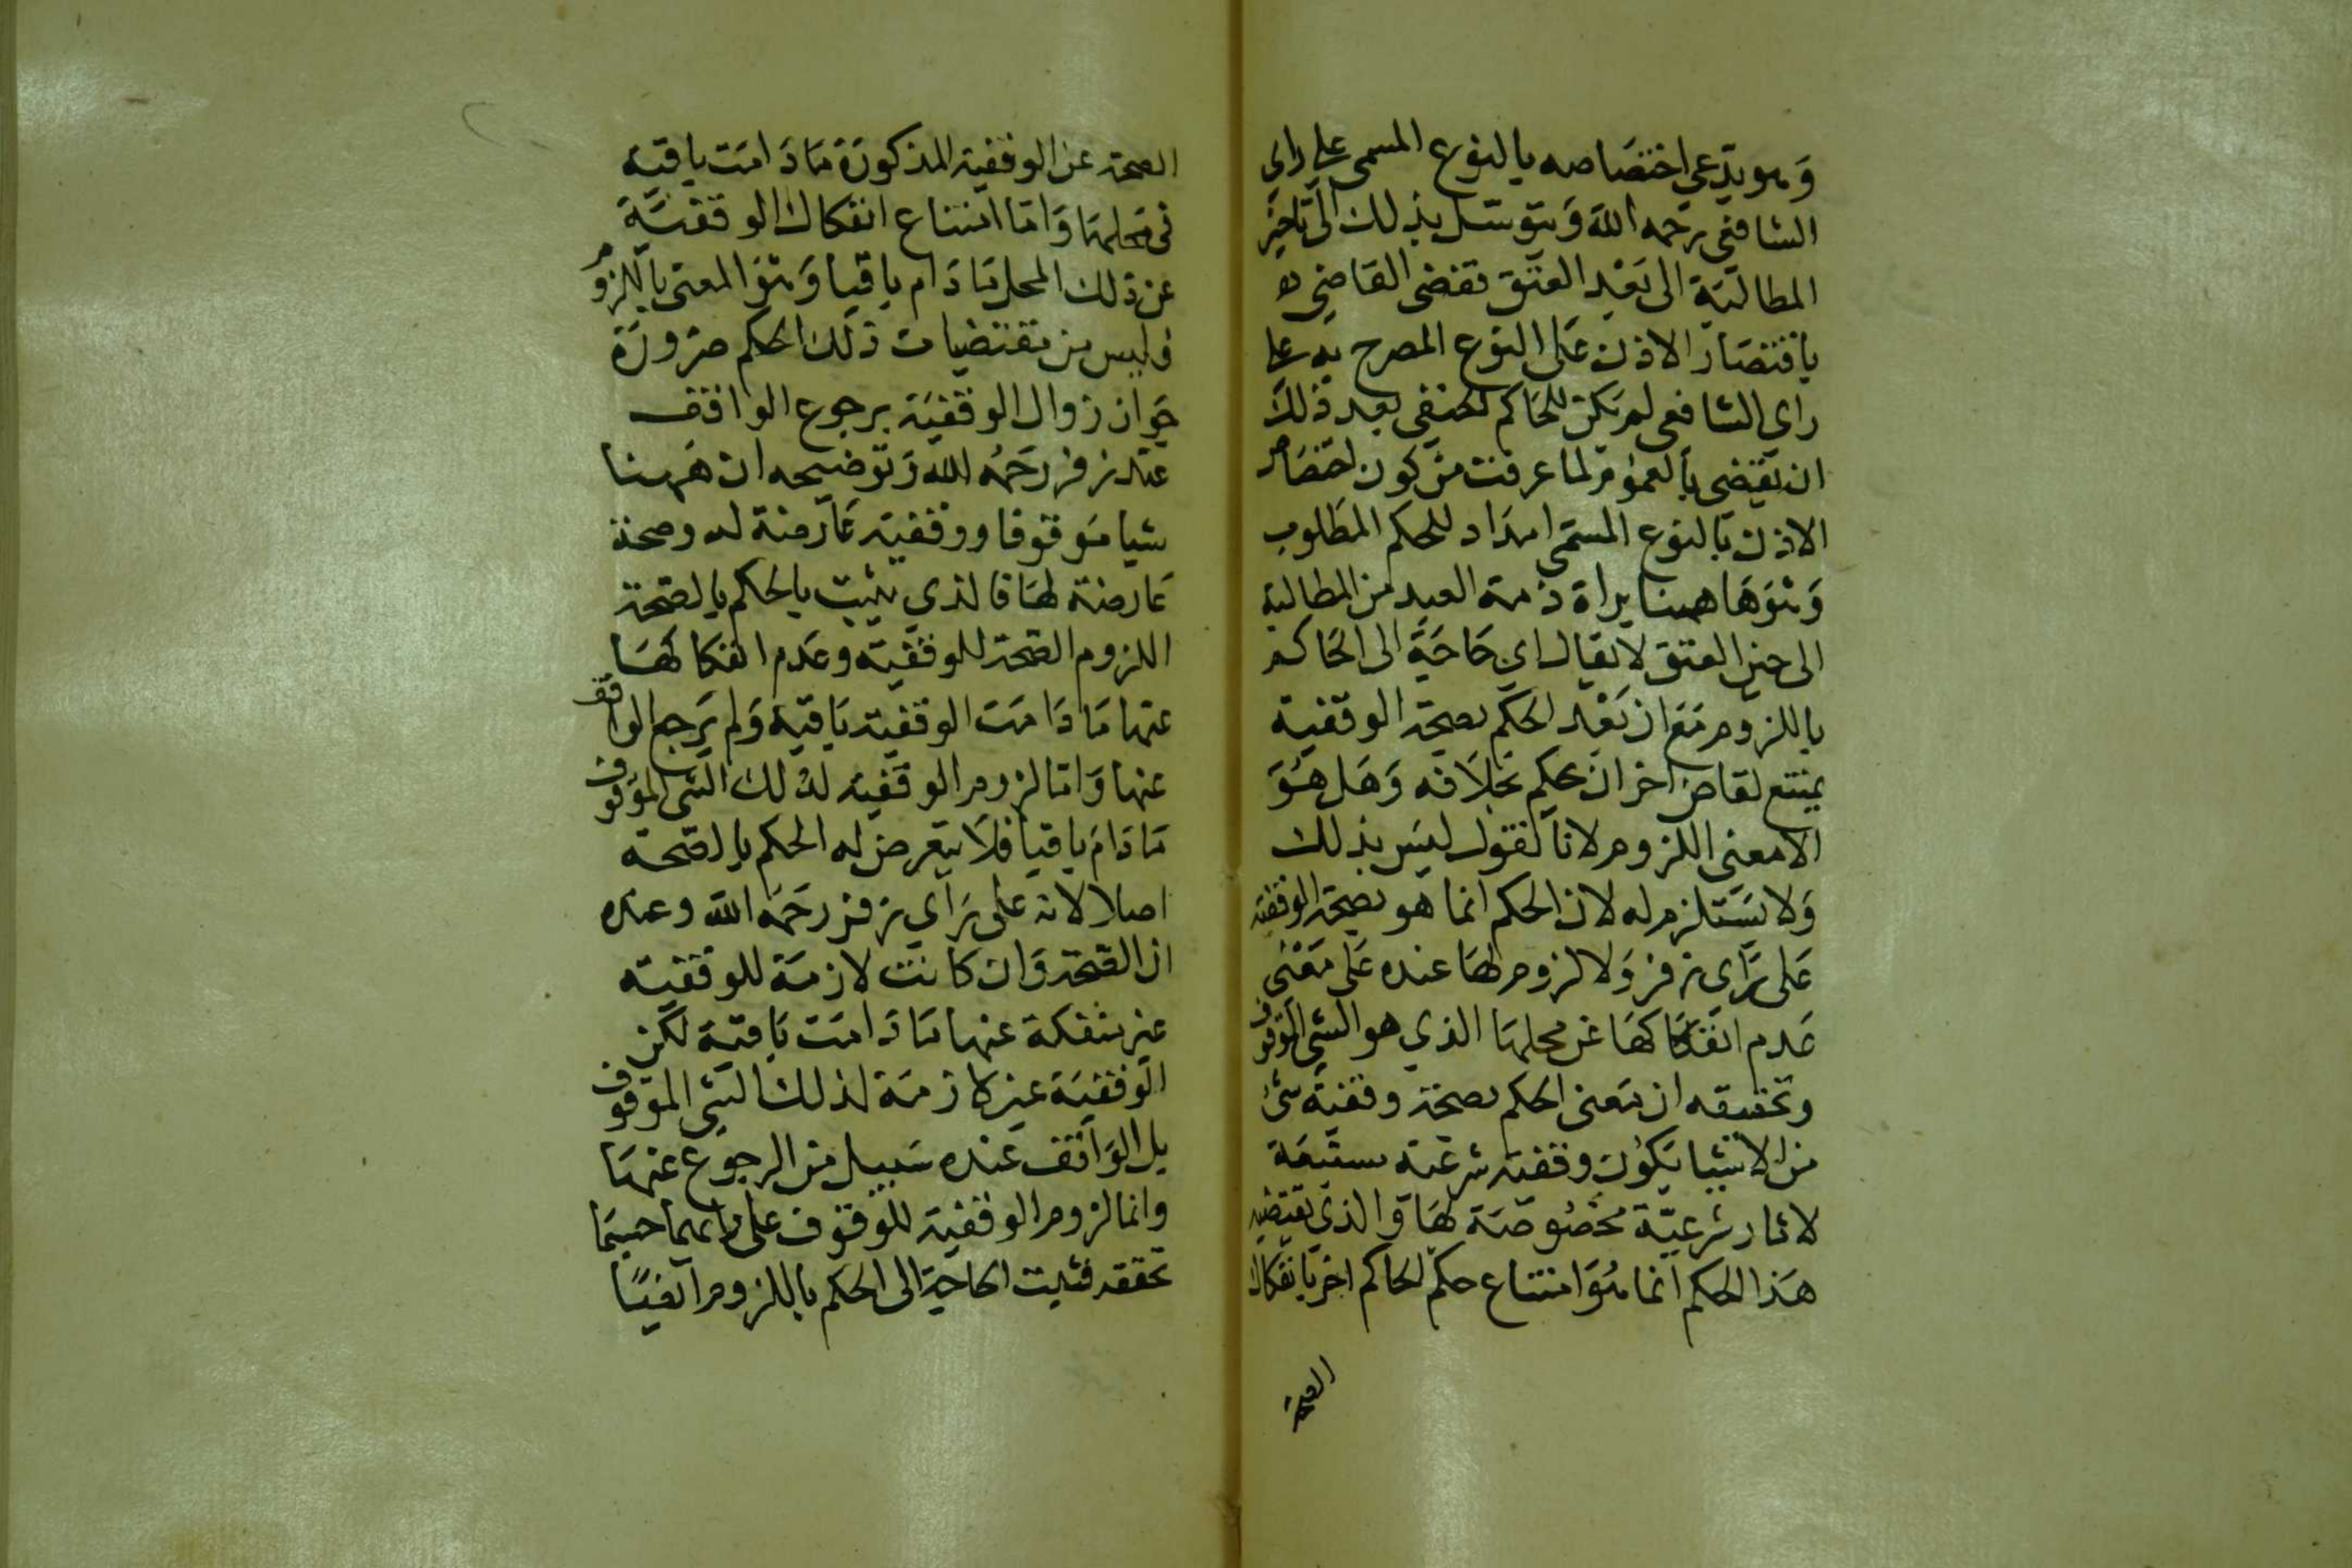 وهو يدعي اختصاصه بالنوع المسمى على راى
الشافعى رحمه الله ويتوسل بذلك الى تاخير
المطالبة الى بعد العتق فقضى القاضي
باقتصار الاذن على النوع المصرح به على
راى الشافعى لم يكن للحاكم الحنفى بعد ذلك
ان يقضي بالعموم لما عرفت من كون اختصاص
الاذن بالنوع المسمى امداد للحكم المطلوب
وهو هاهنا براة ذمة العبد من المطالبة
الى حين العتق لا يقال اي حاجة الى الحاكم
باللزوم مع ان بعد الحكم بصحة الوقفية
يمتنع لقاض اخر ان يحكم بخلافه وهل هو
الا معنى اللزوم لانا نقول ليس بذلك
ولا يستلزم له لان الحكم انما هو بصحة الوقفية
على راى زفر ولا لزوم لها عنده على معنى
عدم انفكاكها عن محلها الذي هو الشي الموقوف
وتحقيقه ان معنى الحكم بصحة وقفية شئ
من الاشيا يكون وقفية شرعية مستتبعة
لاثار شرعية مخصوصة لها والذي يقتضيه
هذا الحكم انما هو امتناع حكم الحاكم اخر بانفكاك
الصحة
الصحة عن الوقفية المذكورة ما دامت باقية
فى محلها واما امتناع انفكاك الوقفية
عن ذلك المحل ما دام باقيا وهو المعنى باللزوم
فليس من مقتضيات ذلك الحكم ضرورة
جواز زوال الوقفية برجوع الواقف
عند زفر رحمه الله وتوضيحه ان ههنا
شيا موقوفا ووقفية عارضة له وصحة
عارضة لها فالذي يثبت بالحكم بالصحة
اللزوم الصحة للوقفية وعدم انفكاكها
عنها ما دامت الوقفية باقية ولم يرجع الواقف
عنها واما لزوم الوقفية لذلك الشى الموقوف
ما دام باقيا فلا يتعرض له الحكم بالصحة
اصلا لانه على راي زفر رحمه الله وعنده
ان الصحة وان كانت لازمة للوقفية
غير منفكة عنها ما دامت باقية لكن
الوقفية غير لازمة لذلك الشى الموقوف
بل الواقف عنده سبيل من الرجوع عنها
وانما لزوم الوقفية للموقوف على رايهما حسبما
تحققه فثبت الحاجة الى الحكم باللزوم ايضا